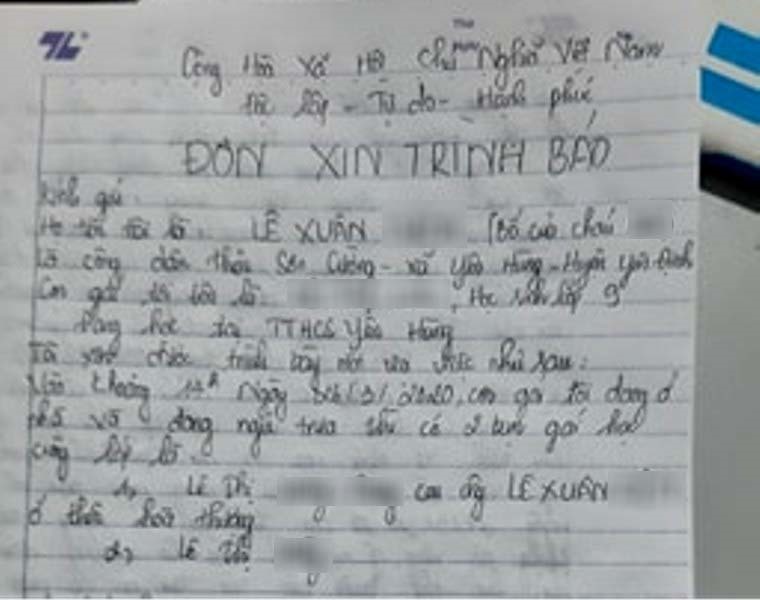 Cộng Hòa Xã Hội Chủ Nghĩa Việt Nam
Độc lập - Tự do - Hạnh phúc
ĐƠN XIN TRÌNH BÁO
Kính gửi
Họ tên tôi là: LÊ XUÂN (Bố của cháu
Là công dân thôn Sơn Cường - xã Yên Hùng - Huyện Yên Định
Con gái tôi tên là: , Học sinh lớp 9
Đang học tại TTHCS Yên Hùng
Tôi xin được trình bày một vụ việc như sau:
Vào khoảng ngày 2020, con gái tôi đang ở
nhà và đang ngủ trưa thì có 2 bạn gái học
cùng lớp là
1, Lê Thị con ông LÊ XUÂN
ở thôn
2, Lê Thị